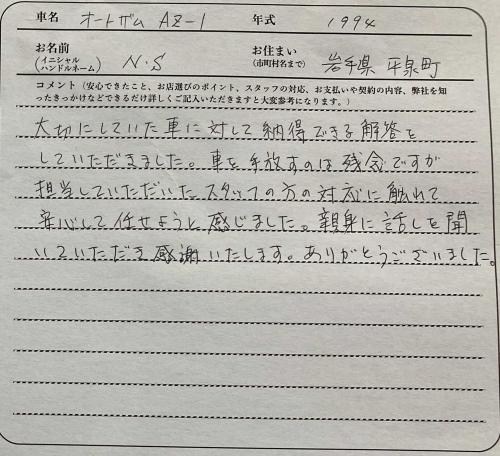 車名 オートザム AZ-1 年式 1994
お名前 (イニシャル ハンドルネーム) N・S お住まい (市町村名まで) 岩手県 平泉町
コメント (安心できたこと、お店選びのポイント、スタッフの対応、お支払いや契約の内容、弊社を知
ったきっかけなどできるだけ詳しくご記入いただきますと大変参考になります。)
大切にしていた車に対して納得できる解答を
していただきました。車を手放すのは残念ですが
担当していただいたスタッフの方の対応に触れて
安心して任せようと感じました。親身に話しを聞
いていただき感謝いたします。ありがとうございました。